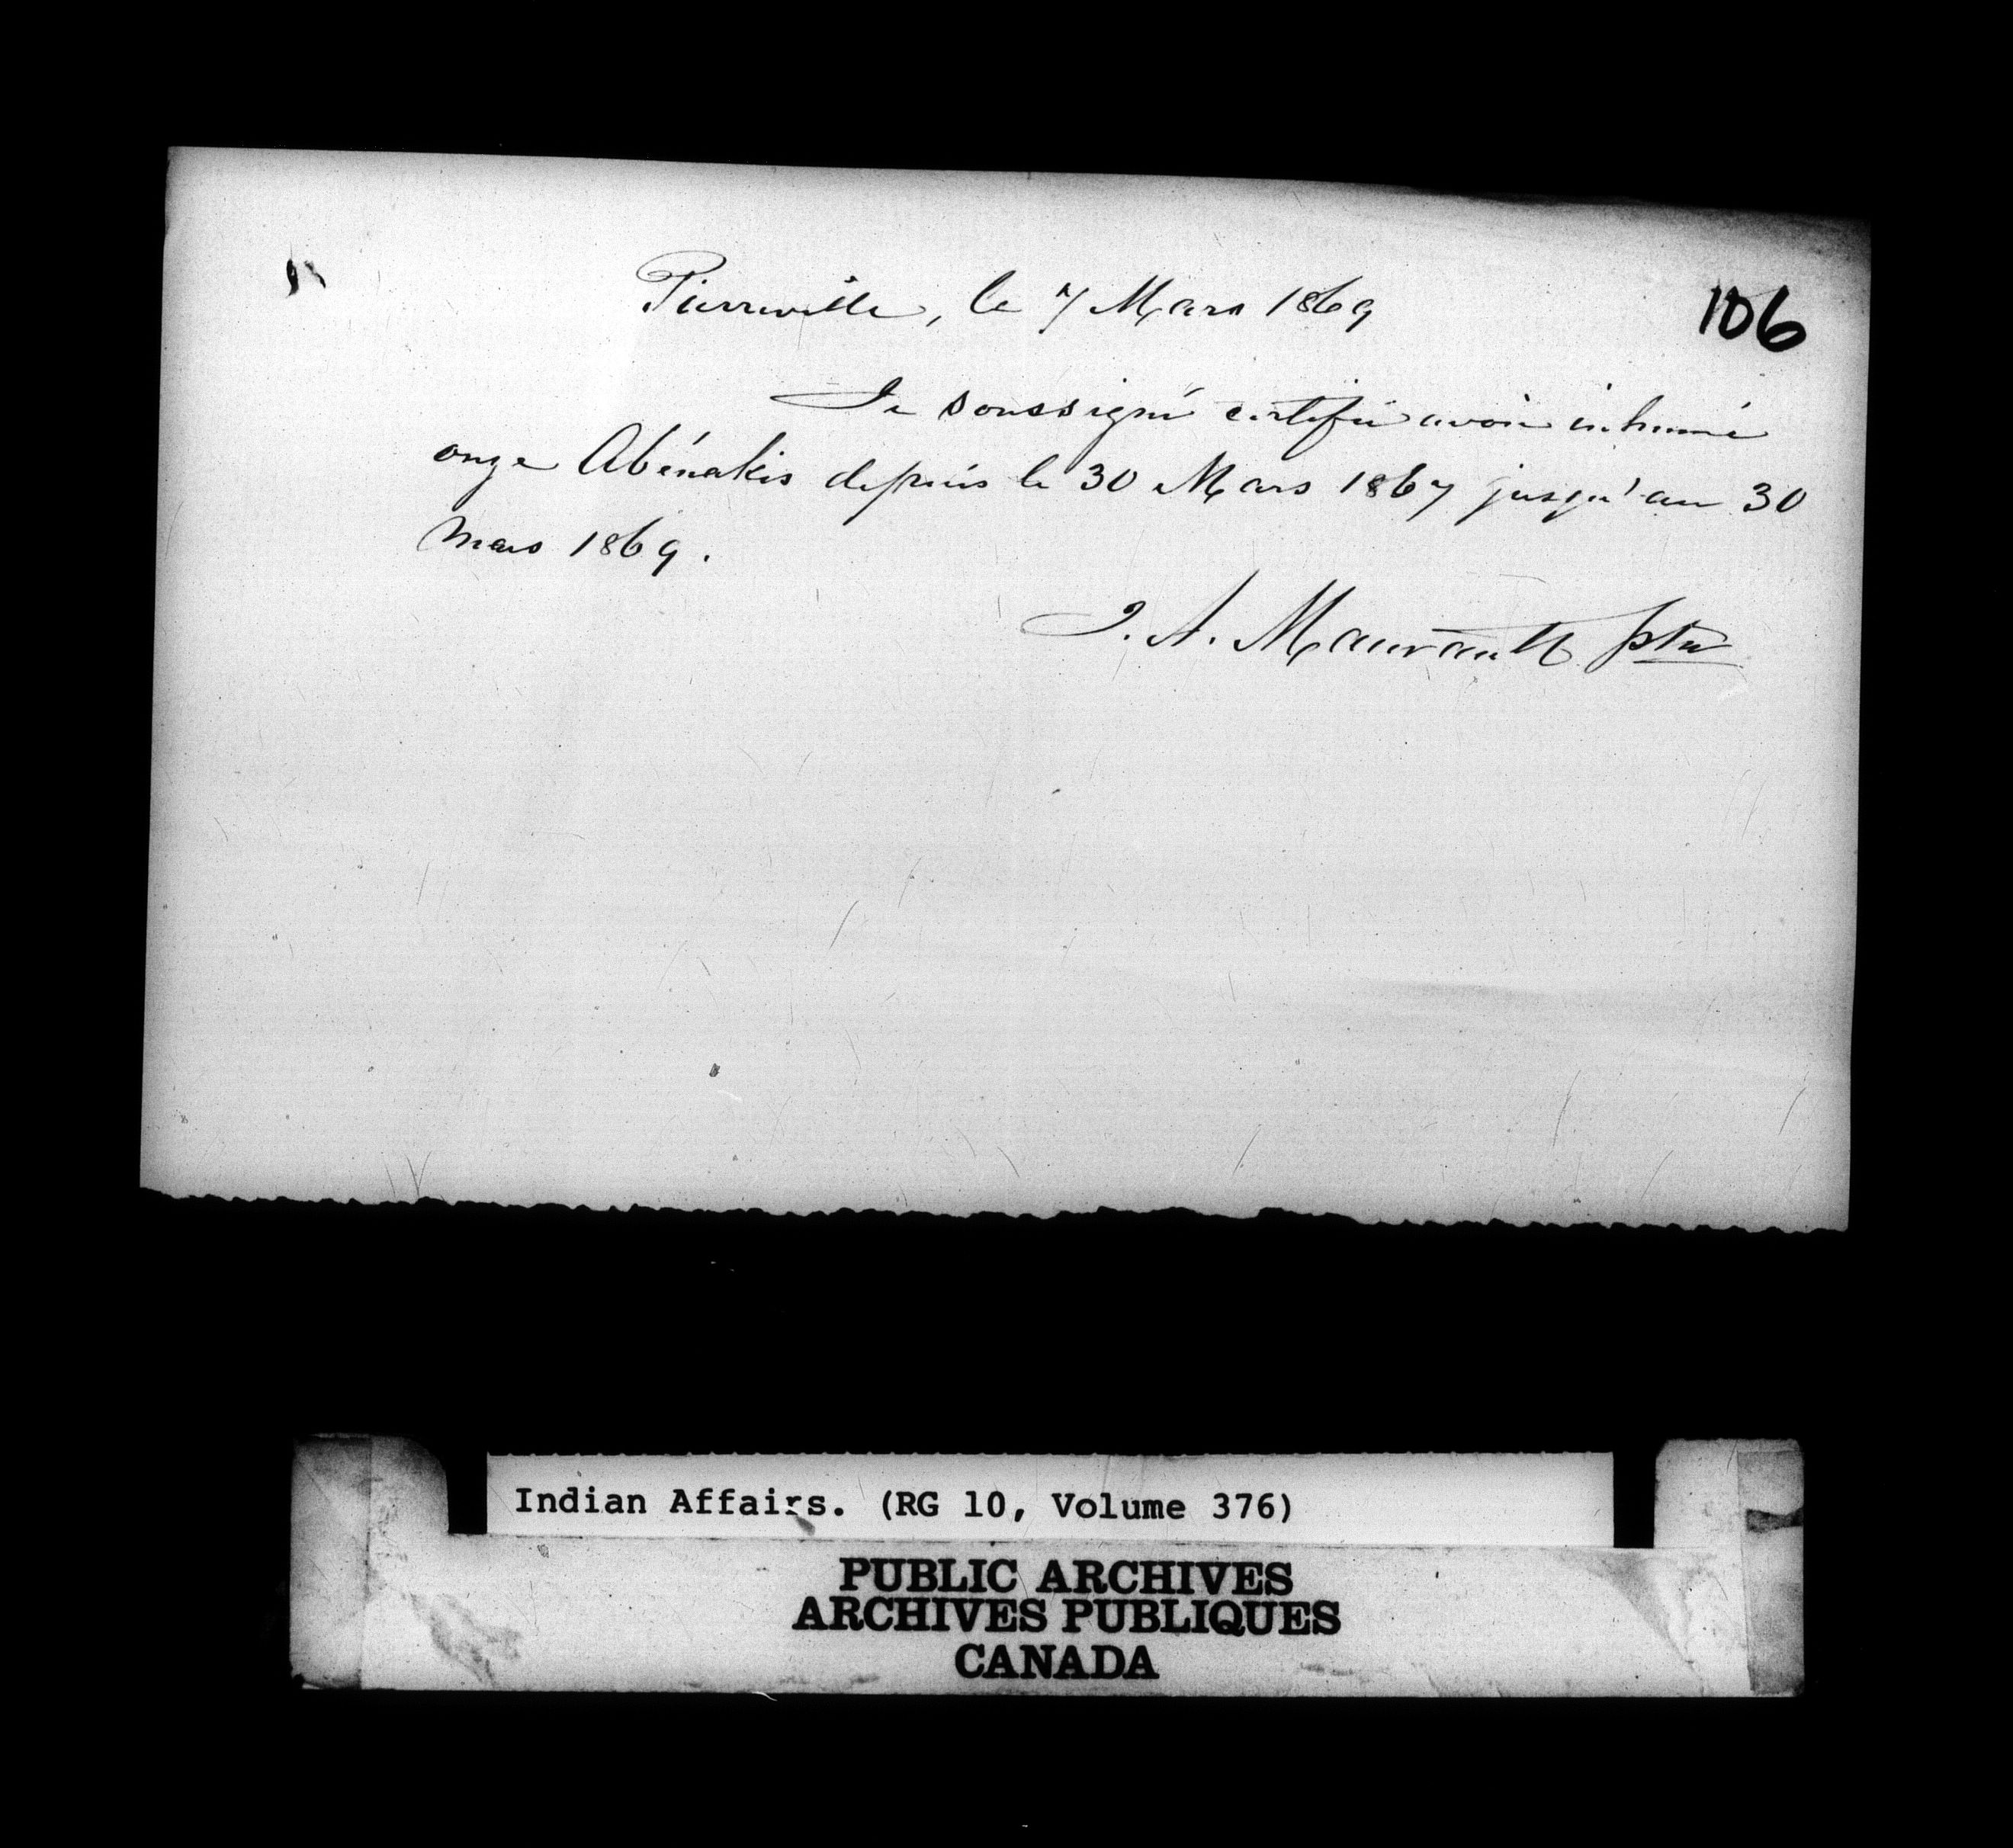 Pierreville, le 7 Mars 1869
106
Je soussigné certifie avoir inhumé
onze Abénakis depuis le 30 Mars 1867 jusqu'au 30
Mars 1869.
J. A. Maurault Ptre
Indian Affairs. (RG 10, Volume 376)
PUBLIC ARCHIVES
ARCHIVES PUBLIQUES
CANADA